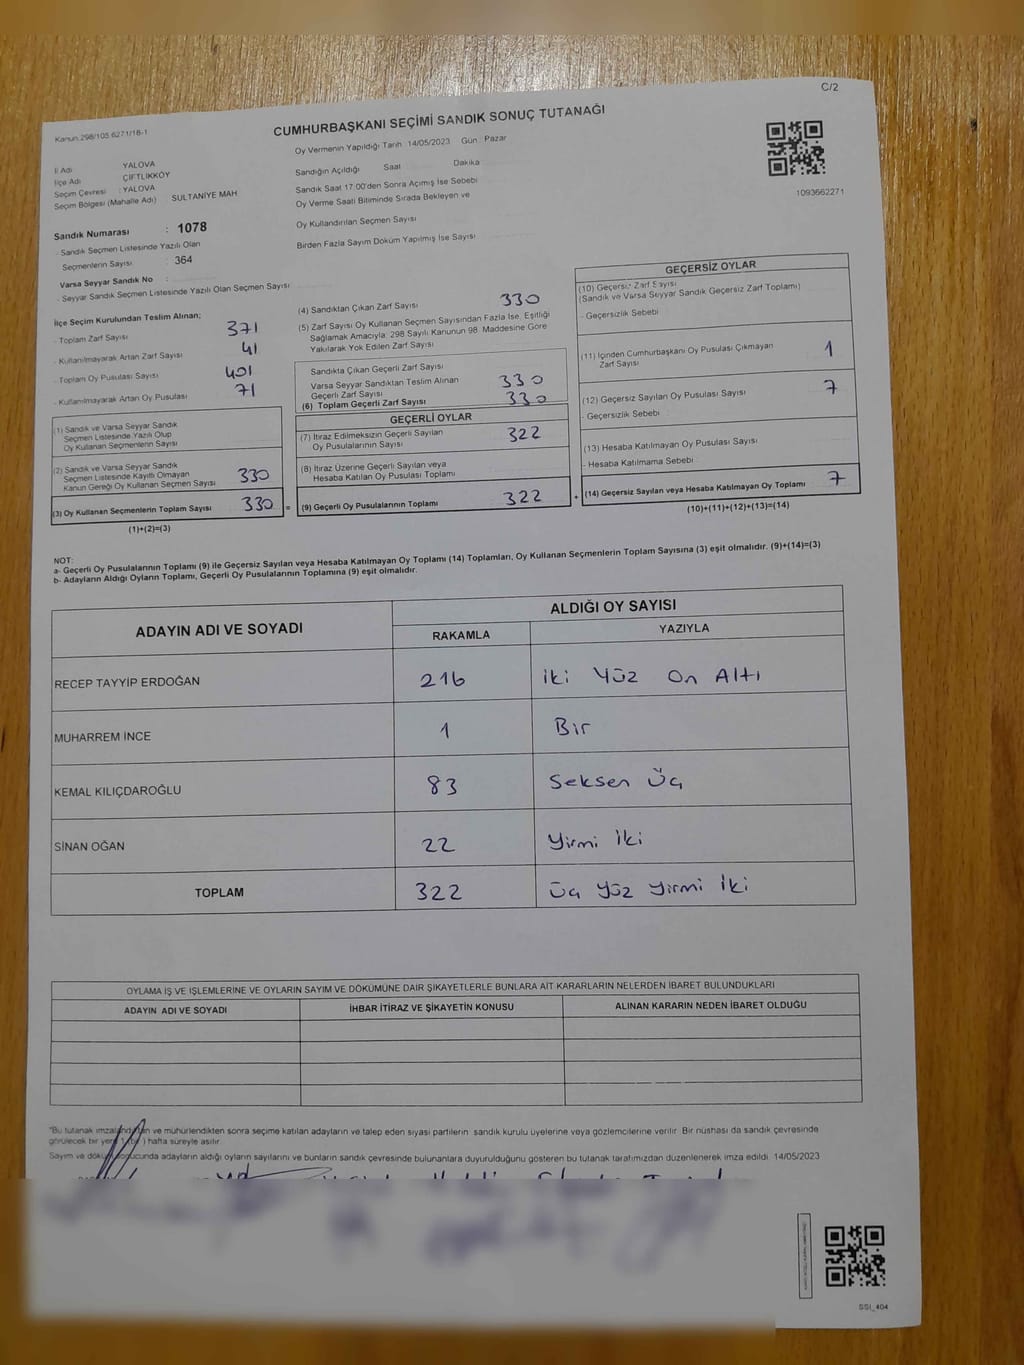 C/2
Kanun.298/105 6271/18-1
CUMHURBAŞKANI SEÇİMİ SANDIK SONUÇ TUTANAĞI
Oy Vermenin Yapıldığı Tarih 14/05/2023 Gün Pazar
İl Adı YALOVA
İlçe Adı ÇİFTLİKKÖY
Seçim Çevresi : YALOVA
Seçim Bölgesi (Mahalle Adı) SULTANİYE MAH
Sandığın Açıldığı Saat Dakika
Sandık Saat 17:00'den Sonra Açımış İse Sebebi
Oy Verme Saati Bitiminde Sırada Bekleyen ve
Oy Kullandırılan Seçmen Sayısı
Birden Fazla Sayım Döküm Yapılmış İse Sayısı
1093662271
Sandık Numarası : 1078
- Sandık Seçmen Listesinde Yazılı Olan
Seçmenlerin Sayısı : 364
Varsa Seyyar Sandık No :
- Seyyar Sandık Seçmen Listesinde Yazılı Olan Seçmen Sayısı
İlçe Seçim Kurulundan Teslim Alınan;
- Toplam Zarf Sayısı 371
- Kullanılmayarak Artan Zarf Sayısı 41
- Toplam Oy Pusulası Sayısı 401
- Kullanılmayarak Artan Oy Pusulası 71
(1) Sandık ve Varsa Seyyar Sandık
Seçmen Listesinde Yazılı Olup
Oy Kullanan Seçmenlerin Sayısı
(2) Sandık ve Varsa Seyyar Sandık
Seçmen Listesinde Kayıtlı Olmayan
Kanun Gereği Oy Kullanan Seçmen Sayısı 330
(3) Oy Kullanan Seçmenlerin Toplam Sayısı 330 =
(1)+(2)=(3)
(4) Sandıktan Çıkan Zarf Sayısı 330
(5) Zarf Sayısı Oy Kullanan Seçmen Sayısından Fazla İse, Eşitliği
Sağlamak Amacıyla: 298 Sayılı Kanunun 98. Maddesine Göre
Yakılarak Yok Edilen Zarf Sayısı
Sandıkta Çıkan Geçerli Zarf Sayısı
Varsa Seyyar Sandıktan Teslim Alınan
Geçerli Zarf Sayısı 330
(6) Toplam Geçerli Zarf Sayısı 330
GEÇERLİ OYLAR
(7) İtiraz Edilmeksizin Geçerli Sayılan
Oy Pusulalarının Sayısı 322
(8) İtiraz Üzerine Geçerli Sayılan veya
Hesaba Katılan Oy Pusulası Toplamı
(9) Geçerli Oy Pusulalarının Toplamı 322 +
GEÇERSİZ OYLAR
(10) Geçersiz Zarf Sayısı
(Sandık ve Varsa Seyyar Sandık Geçersiz Zarf Toplamı)
- Geçersizlik Sebebi
(11) İçinden Cumhurbaşkanı Oy Pusulası Çıkmayan
Zarf Sayısı 1
(12) Geçersiz Sayılan Oy Pusulası Sayısı 7
- Geçersizlik Sebebi
(13) Hesaba Katılmayan Oy Pusulası Sayısı
- Hesaba Katılmama Sebebi
(14) Geçersiz Sayılan veya Hesaba Katılmayan Oy Toplamı 7
(10)+(11)+(12)+(13)=(14)
NOT:
a- Geçerli Oy Pusulalarının Toplamı (9) ile Geçersiz Sayılan veya Hesaba Katılmayan Oy Toplamı (14) Toplamları, Oy Kullanan Seçmenlerin Toplam Sayısına (3) eşit olmalıdır. (9)+(14)=(3)
b- Adayların Aldığı Oyların Toplamı, Geçerli Oy Pusulalarının Toplamına (9) eşit olmalıdır.
ADAYIN ADI VE SOYADI ALDIĞI OY SAYISI
RAKAMLA YAZIYLA
RECEP TAYYİP ERDOĞAN 216 iki Yüz On Altı
MUHARREM İNCE 1 Bir
KEMAL KILIÇDAROĞLU 83 Seksen Üç
SİNAN OĞAN 22 Yirmi İki
TOPLAM 322 Üç Yüz Yirmi İki
OYLAMA İŞ VE İŞLEMLERİNE VE OYLARIN SAYIM VE DÖKÜMÜNE DAİR ŞİKAYETLERLE BUNLARA AİT KARARLARIN NELERDEN İBARET BULUNDUKLARI
ADAYIN ADI VE SOYADI İHBAR İTİRAZ VE ŞİKAYETİN KONUSU ALINAN KARARIN NEDEN İBARET OLDUĞU
"Bu tutanak imzalandıktan ve mühürlendikten sonra seçime katılan adayların ve talep eden siyasi partilerin sandık kurulu üyelerine veya gözlemcilerine verilir. Bir nüshası da sandık çevresinde
görülecek bir yere 1 (bir) hafta süreyle asılır.
Sayım ve döküm sonucunda adayların aldığı oyların sayılarını ve bunların sandık çevresinde bulunanlara duyurulduğunu gösteren bu tutanak tarafımızdan düzenlenerek imza edildi. 14/05/2023
SSI_404